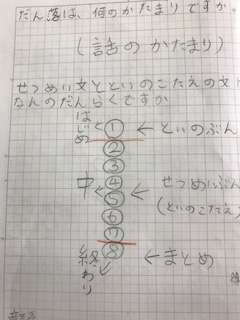 だん落は、何のかたまりですか
(話のかたまり)
せつめい文とといのこたえの文
なんのだんらくですか
はじめ
① ←といのぶん
②
③
中 ④
⑤ ← せつめいぶん
(といのこたえ
⑥
⑦
終わり ⑧ ←まとめ